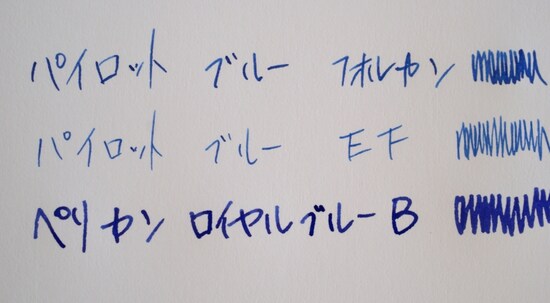 パイロット ブルー フォルカン
パイロット ブルー EF
ペリカン ロイヤルブルー B